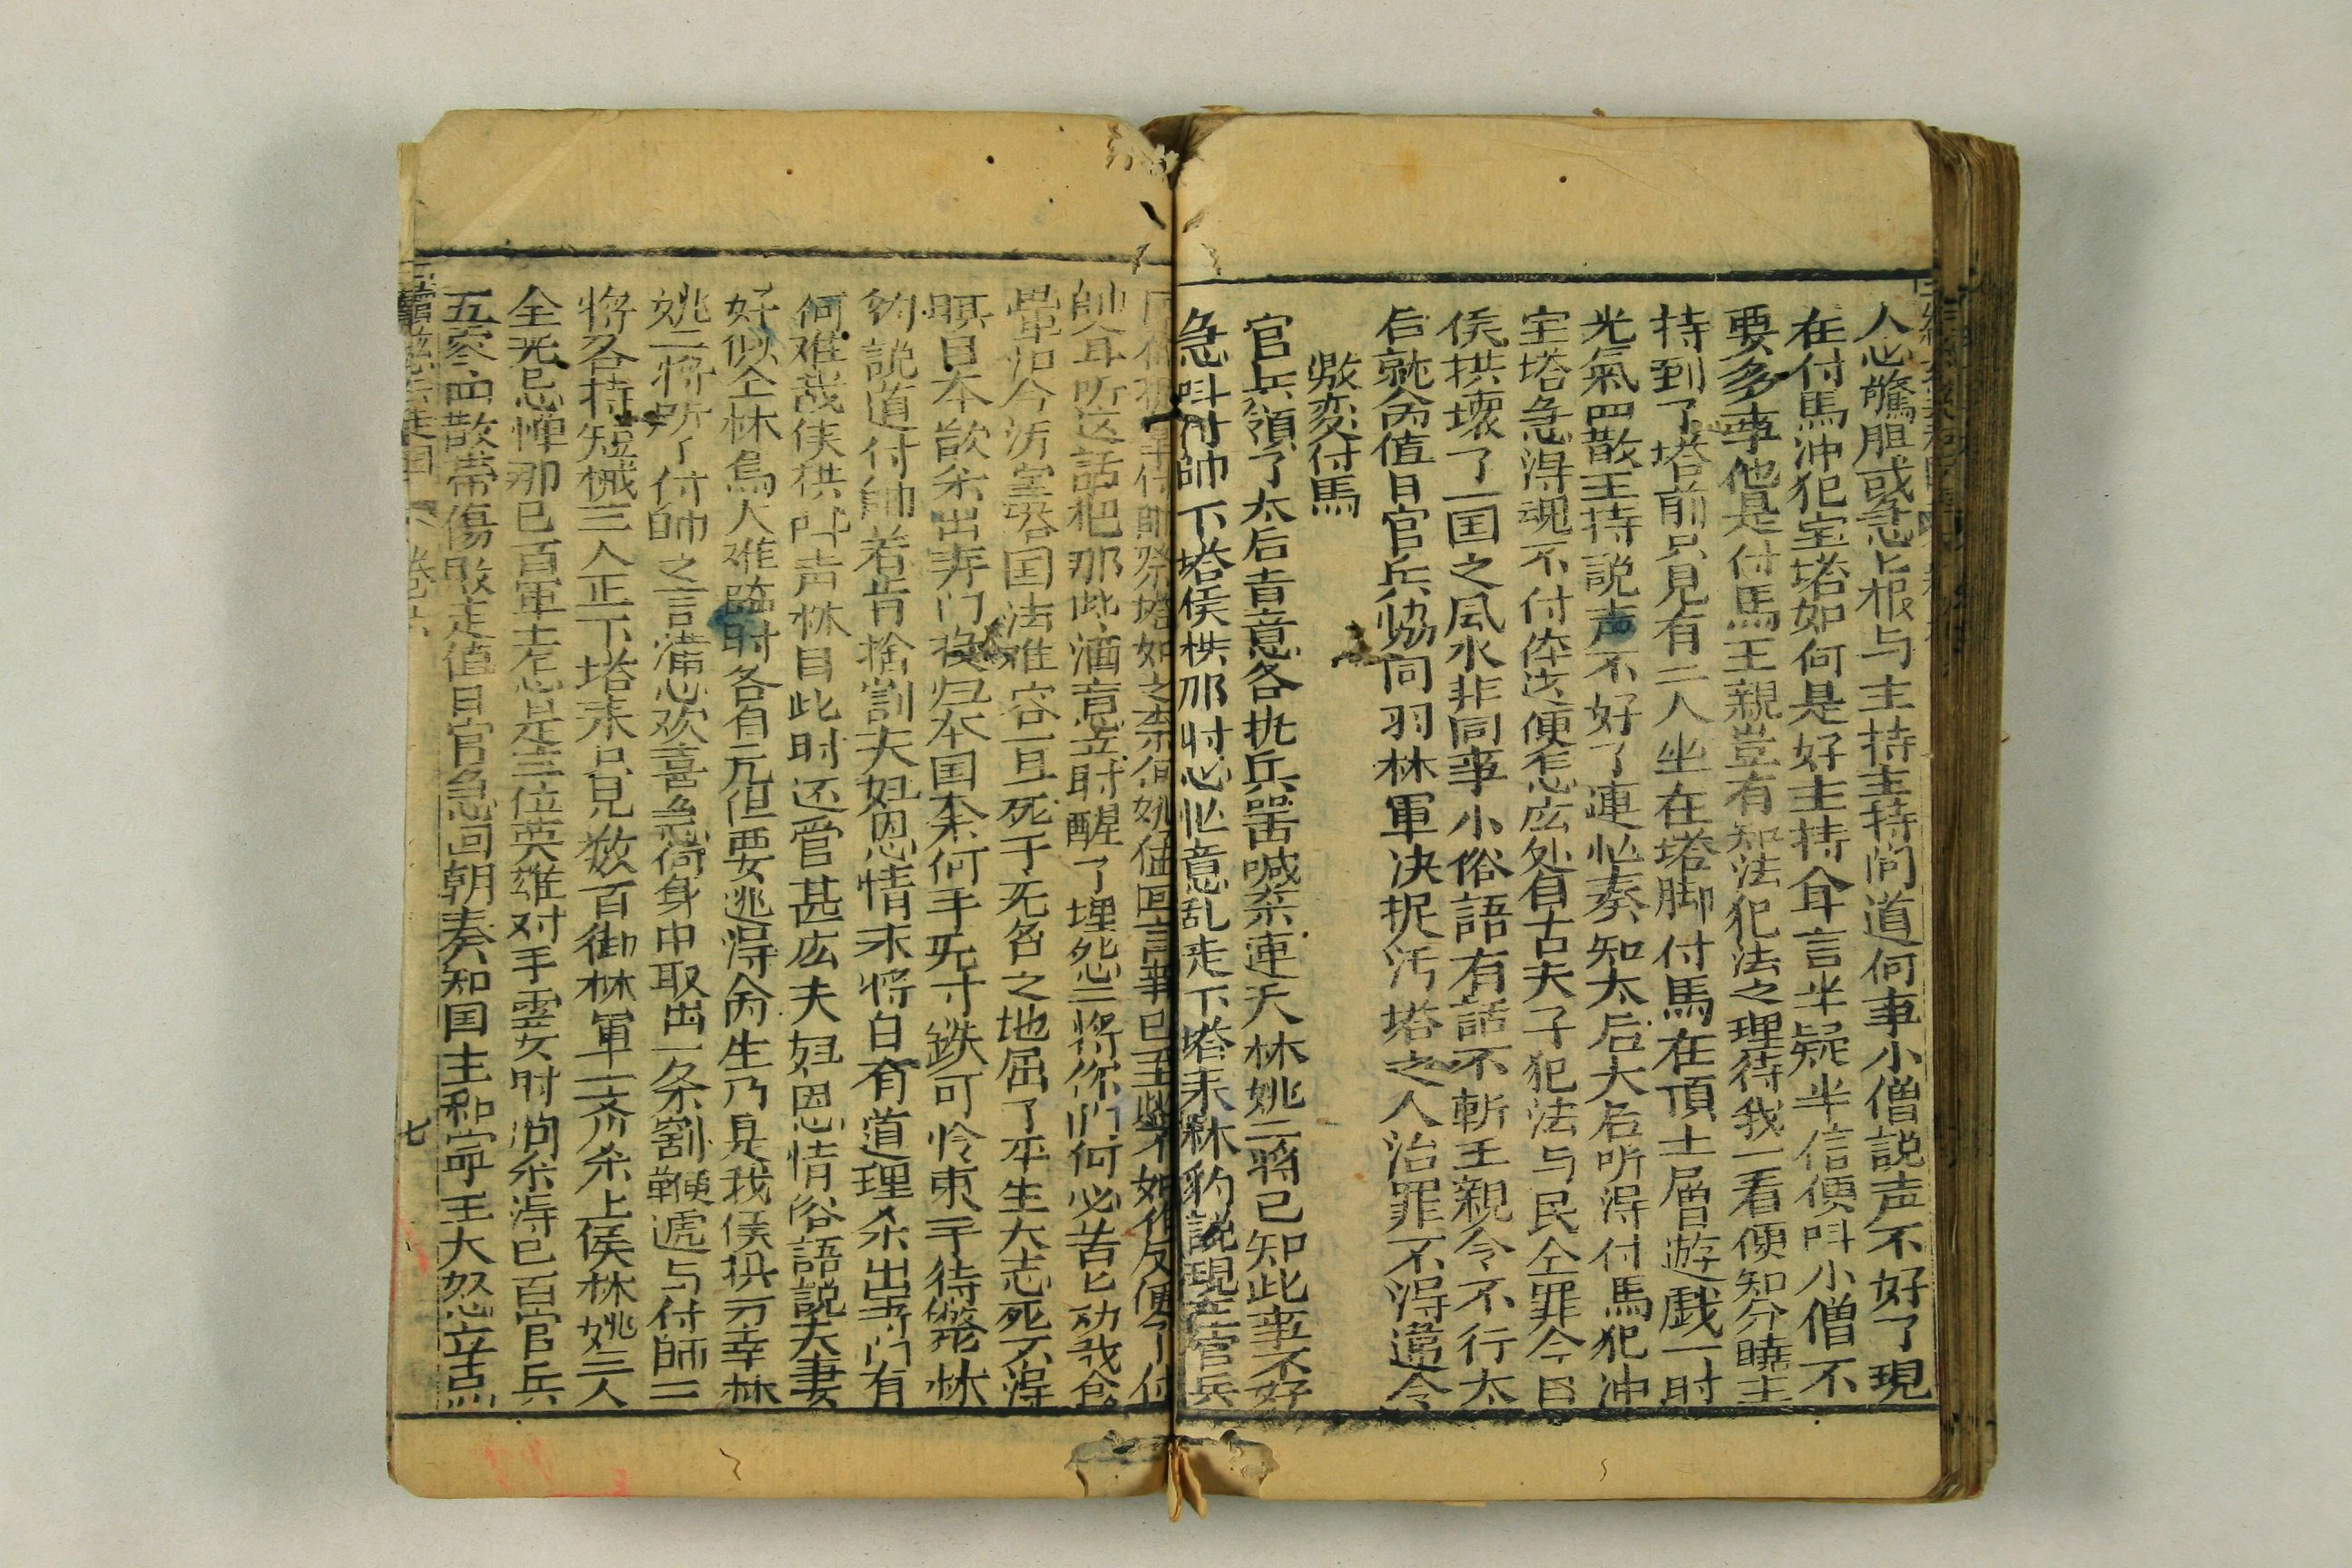 人心驚胆或急上根与主持主持问道何事小僧説声不好了現
在付馬冲犯宝塔如何是好主持耸言半疑半信便呌小僧不
要多事他是付馬王親豈有知法犯法之理待我一看便知分曉主
持到了塔前只見有二人坐在塔脚付馬在頂士層遊戯一时
光氣四散王持説声不好了連忙奏知太后太后听淂付馬犯冲
宝塔急淂魂不付体这便怎広処自古天子犯法与民仝罪今日
侯拱壊了一国之風水非同事小俗語有話不斬王親令不行太
后就命值日官兵恊同羽林軍决捉汚塔之人治罪不淂違令
敗変付馬
官兵領了太后旨意各执兵噐喊杀連天林姚二將已知此事不好
急呌付帥下塔侯拱那时心忙意乱走下塔来林豹説現在官兵
帥耸听这話把那此酒意立时醒了埋怨二将你们何必苦匕劝我食
畢酒今汚宝塔国法难容一旦死于无名之地屈了平生大志死不淂
瞑目本欲杀出弄门投归本国奈何手无寸鉄可怜束手待斃林
豹説道付帥若肯捨割夫妇恩情末将自有道理杀出弄门有
何难哉侯拱呌声林目此时还管甚広夫妇恩情俗語説夫妻
好似仝林鳥大难臨时各自元但要逃淂命生乃是我侯拱万幸林
姚二将听了付帥之言満心欢喜急荷身中取出一条割鞭遞与付帥二
将各持短械三人正下塔来只見数百御林軍一齐杀上侯林姚三人
全无忌惮那巳百軍士怎是三位英雄对手霎时间杀淂巳百官兵
五零四散帯傷敗走值日官急回朝奏知国主和寜王大怒立点
七